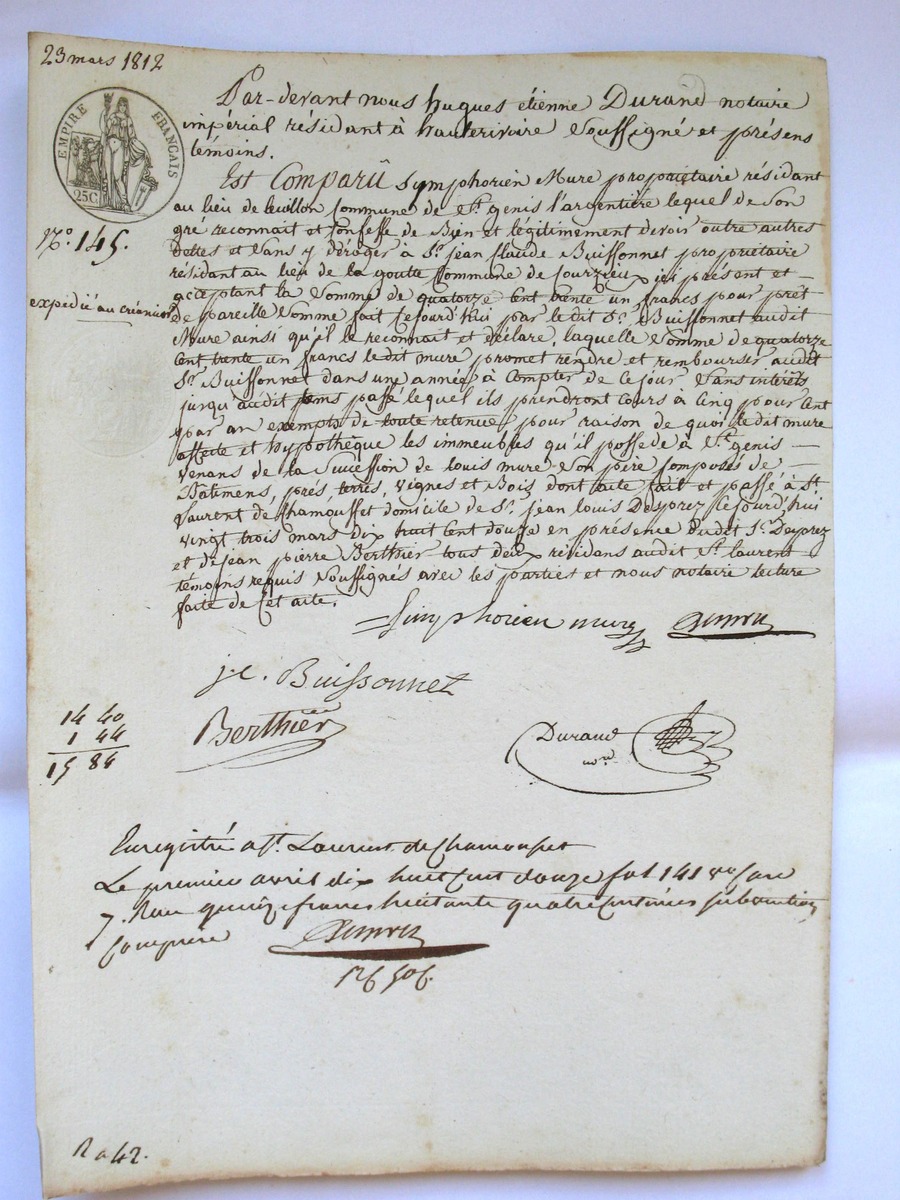 23 mars 1812
EMPIRE FRANÇAIS
25C
Par-devant nous hugues étienne Durand notaire
impérial résidant à hauterivoire soussigné et présens
témoins.
Est Comparû Symphorien Mure propriétaire résidant
au lieu de Commune de St. genis l'argentière lequel de Son
gré reconnait et Confesse de Bien et légitimement devoir outre autres
dettes et Sans y déroger à Sr. jean Claude Buissonnet propriétaire
résidant au lieu de la goutte Commune de Courzieu ici présent et
acceptant la Somme de quatorze Cent trente un francs pour prêt
de pareille Somme fait Cejourd'hui par le dit Sr. Buissonnet audit
Mure ainsi qu'il le reconnait et déclare, laquelle Somme de quatorze
Cent trente un francs le dit mure promet rendre et rembourser audit
Sr. Buissonnet dans une année à Compter de Ce jour, Sans intérêts
jusqu'audit tems passé lequel ils prendront Cours à Cinq pour Cent
par an exempts de toute retenue, pour raison de quoi le dit mure
affecte et hypothèque les immeubles qu'il possede à St. genis
venans de la Succession de louis mure Son père Composés de
Bâtimens, prés, terres, vignes et Bois dont acte fait et passé à St
Laurent de Chamousset domicile de Sr. jean louis Desprez Cejourd'hui
vingt trois mars dix huit Cent douze en présence dudit Sr. Desprez
et de jean pierre Berthier tous deux résidans audit St. laurent
témoins requis Soussignés avec les parties et nous notaire lecture
faite de Cet acte.
No. 145.
expédié au créancier
Simphorien mure
j.c. Buissonnet
Berthier
Durand
nore
14 40
1 44
15 84
Enregistré a St. Laurent de Chamousset
Le premier avril dix huit cent douze fol 141 vo Case
7. Reçu quinze francs huitante quatre centimes subvention
Comprise
R a 42.